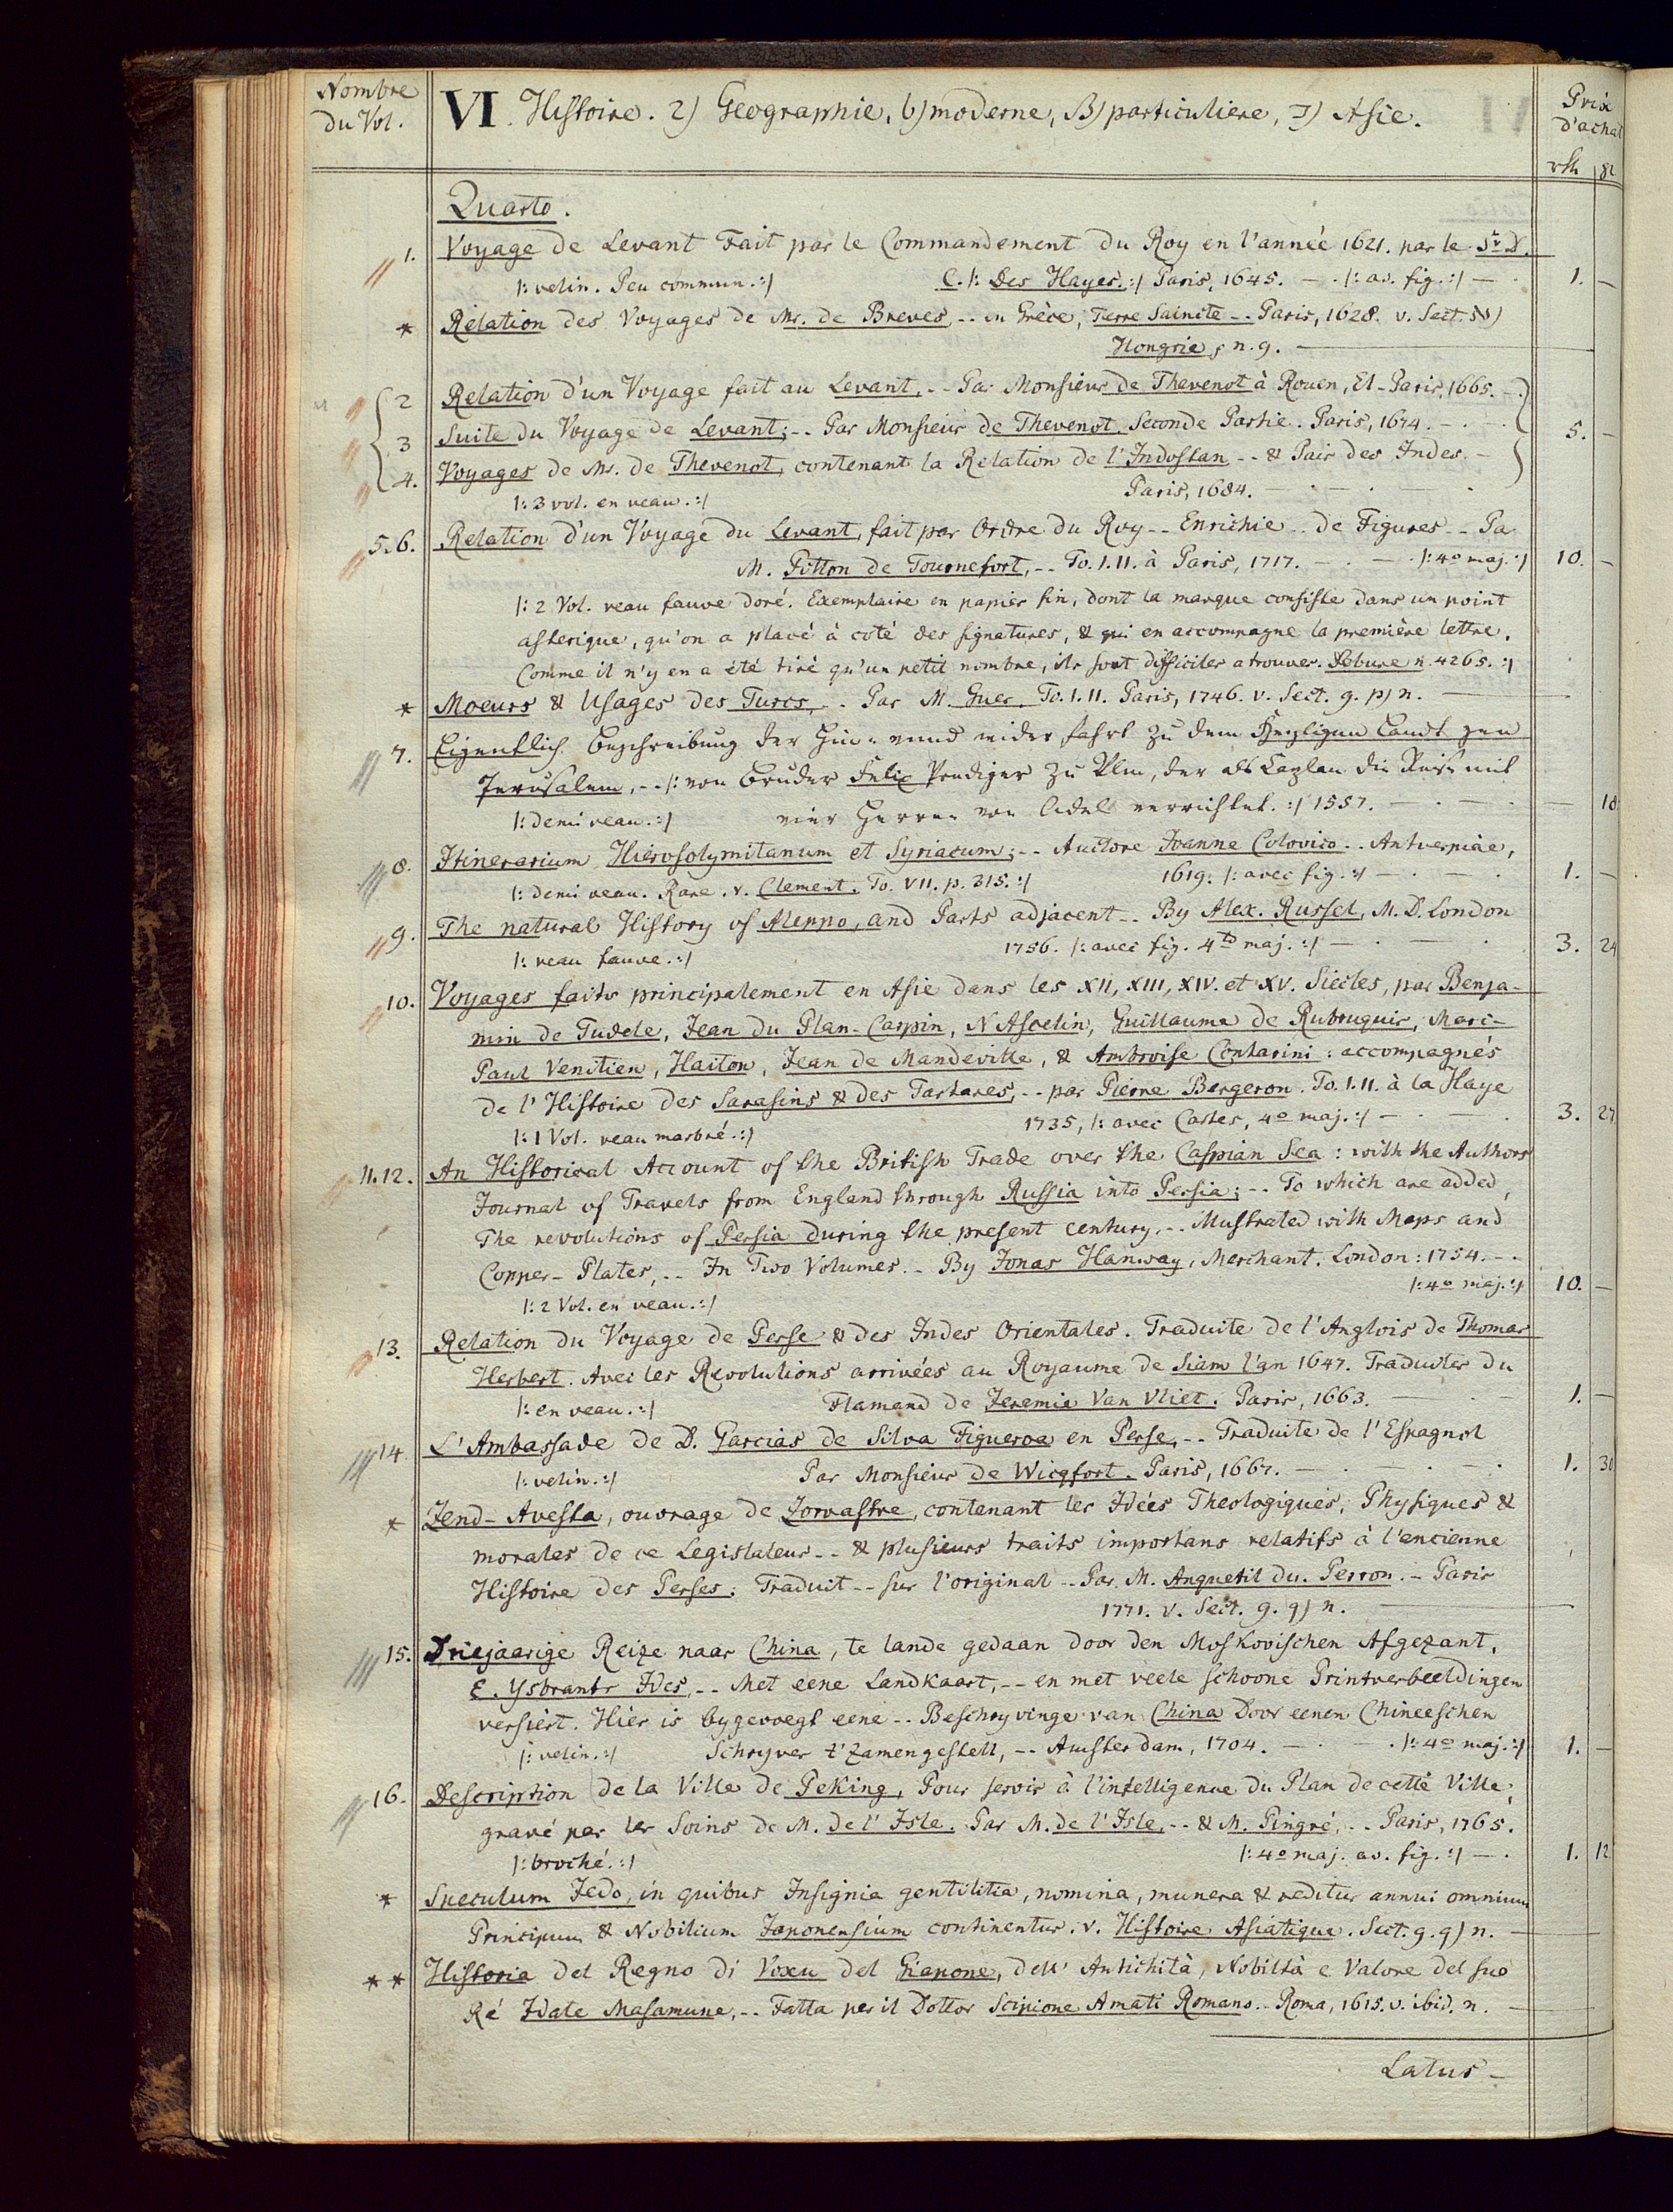 Nombre
du Vol.
VI. Histoire. 2) Geographie, b) moderne, B) particuliere, Asie.
Prix
d'achat
rth
Quarto.
1. Voyage de Levant Fait par le Commandement du Roy en l'année 1621. par le Sr. D.
|: velin. Peu commun. :| C. |: Des Hayes. :| Paris, 1645. — . |: av. fig. :| — . 1. —
* Relation des Voyages de Mr. de Breves, -- en Grèce, Terre Saincte -- Paris, 1628. v. Sect.
Hongrie, n. 9. —
2 Relation d'un Voyage fait au Levant, -- Par Monsieur de Thevenot à Rouen, Et-Paris, 1665. -.
3 Suite du Voyage de Levant; -- Par Monsieur de Thevenot. Seconde Partie. Paris, 1674. — . — . 5. —
4. Voyages de Mr. de Thevenot, contenant la Relation de l'Indostan -- & Païs des Indes. —
|: 3 vol. en veau. :| Paris, 1684. — . — . — .
5.6. Relation d'un Voyage du Levant, fait par Ordre du Roy -- Enrichie -- de Figures -- Pa
M. Pitton de Tournefort, -- To. I. II. à Paris, 1717. — . — . |: 4o maj. :| 10. —
|: 2 Vol. veau fauve doré. Exemplaire en papier fin, dont la marque consiste dans un point
asterique, qu'on a placé à coté des signatures, & qui en accompagne la première lettre.
Comme il n'y en a été tiré qu'un petit nombre, ils sont difficiles a trouver. Debure n. 4265. :|
* Moeurs & Usages des Turcs, -. Par M. Guer. To. I. II. Paris, 1746. v. Sect. 9. p) n. —
7. Eigentlich Beschreibung der Hin- unnd wider fahrt zu dem Heyligen Landt gen
Jerusalem, -- |: von Bruder Felix Prediger zu Ulm, der als Caplan die Reise mit
|: demi veau. :| vier Herren von Adel verrichtet. :| 1557. — . — . — 18
8. Itinerarium Hierosolymitanum et Syriacum; -- Auctore Ioanne Cotovico -- Antverpiae,
|: demi veau. Rare. v. Clement. To. VII. p. 315. :| 1619. |: avec fig. :| — . — . 1. —
9. The natural History of Aleppo, and Parts adjacent -- By Alex. Russel, M. D. London
|: veau fauve. :| 1756. |: avec fig. 4to maj. :| — . — . 3. 24
10. Voyages faits principalement en Asie dans les XII, XIII, XIV. et XV. Siècles, par Benja-
min de Tudele, Jean du Plan-Carpin, N Ascelin, Guillaume de Rubruquis, Marc-
Paul Venitien, Haiton, Jean de Mandeville, & Ambroise Contarini: accompagnés
de l'Histoire des Sarasins & des Tartares, -- par Pierre Bergeron. To. I. II. à la Haye
|: 1 Vol. veau marbré. :| 1735, |: avec Cartes, 4o maj. :| — . — . 3. 27
11.12. An Historical Account of the British Trade over the Caspian Sea: with the Authors
Journal of Travels from England through Russia into Persia; -- To which are added,
The revolutions of Persia during the present century, -- Illustrated with Maps and
Copper-Plates, -- In Two Volumes. - By Jonas Hanway, Merchant. London: 1754. - .
|: 2 Vol. en veau. :| |: 4o maj. :| 10. —
13. Relation du Voyage de Perse & des Indes Orientales. Traduite de l'Anglois de Thomas
Herbert. Avec les Revolutions arrivées au Royaume de Siam l'an 1647. Traduites du
|: en veau. :| Flamand de Jeremie Van Vliet. Paris, 1663. — . — 1. —
14 L'Ambassade de D. Garcias de Silva Figueroa en Perse, -- Traduite de l'Espagnol
|: velin. :| Par Monsieur de Wicqfort. Paris, 1667. — . — . — . 1. 30
* Zend-Avesta, ouvrage de Zoroastre, contenant les Idées Theologiques, Physiques &
morales de ce Legislateur -- & plusieurs traits importans relatifs à l'encienne
Histoire des Perses: Traduit -- sur l'original -- Par M. Anquetil du Perron. - Paris
1771. v. Sect. 9. q) n. —
15. Driejaarige Reize naar China, te lande gedaan door den Moskovischen Afgezant,
E. Ysbrants Ides, -- Met eene Landkaart, -- en met veele schoone Printverbeeldingen
versiért. Hiér is bygevoegt eene -- Beschryvinge van China Door eenen Chineeschen
|: velin. :| Schryver t'zamengestelt, -- Amsterdam, 1704. — . — . |: 4o maj. :| 1. —
16. Description de la Ville de Peking, Pour servir à l'intelligence du Plan de cette Ville,
gravé par les Soins de M. de l'Isle. Par M. de l'Isle, -- & M. Pingré, -- Paris, 1765.
|: broché. :| |: 4o maj. av. fig. :| — . 1. 12
* Speculum Jedo, in quibus Insignia gentilitia, nomina, munera & reditus annui omnium
Principum & Nobilium Japonensium continentur. v. Histoire Asiatique. Sect. 9. q) n. —
** Historia del Regno di Voxu del Giapone, dell' Antichità, Nobiltà e Valore del suo
Ré Idate Masamune, -- Fatta per il Dottor Scipione Amati Romano -- Roma, 1615. v. ibid. n. —
Latus —